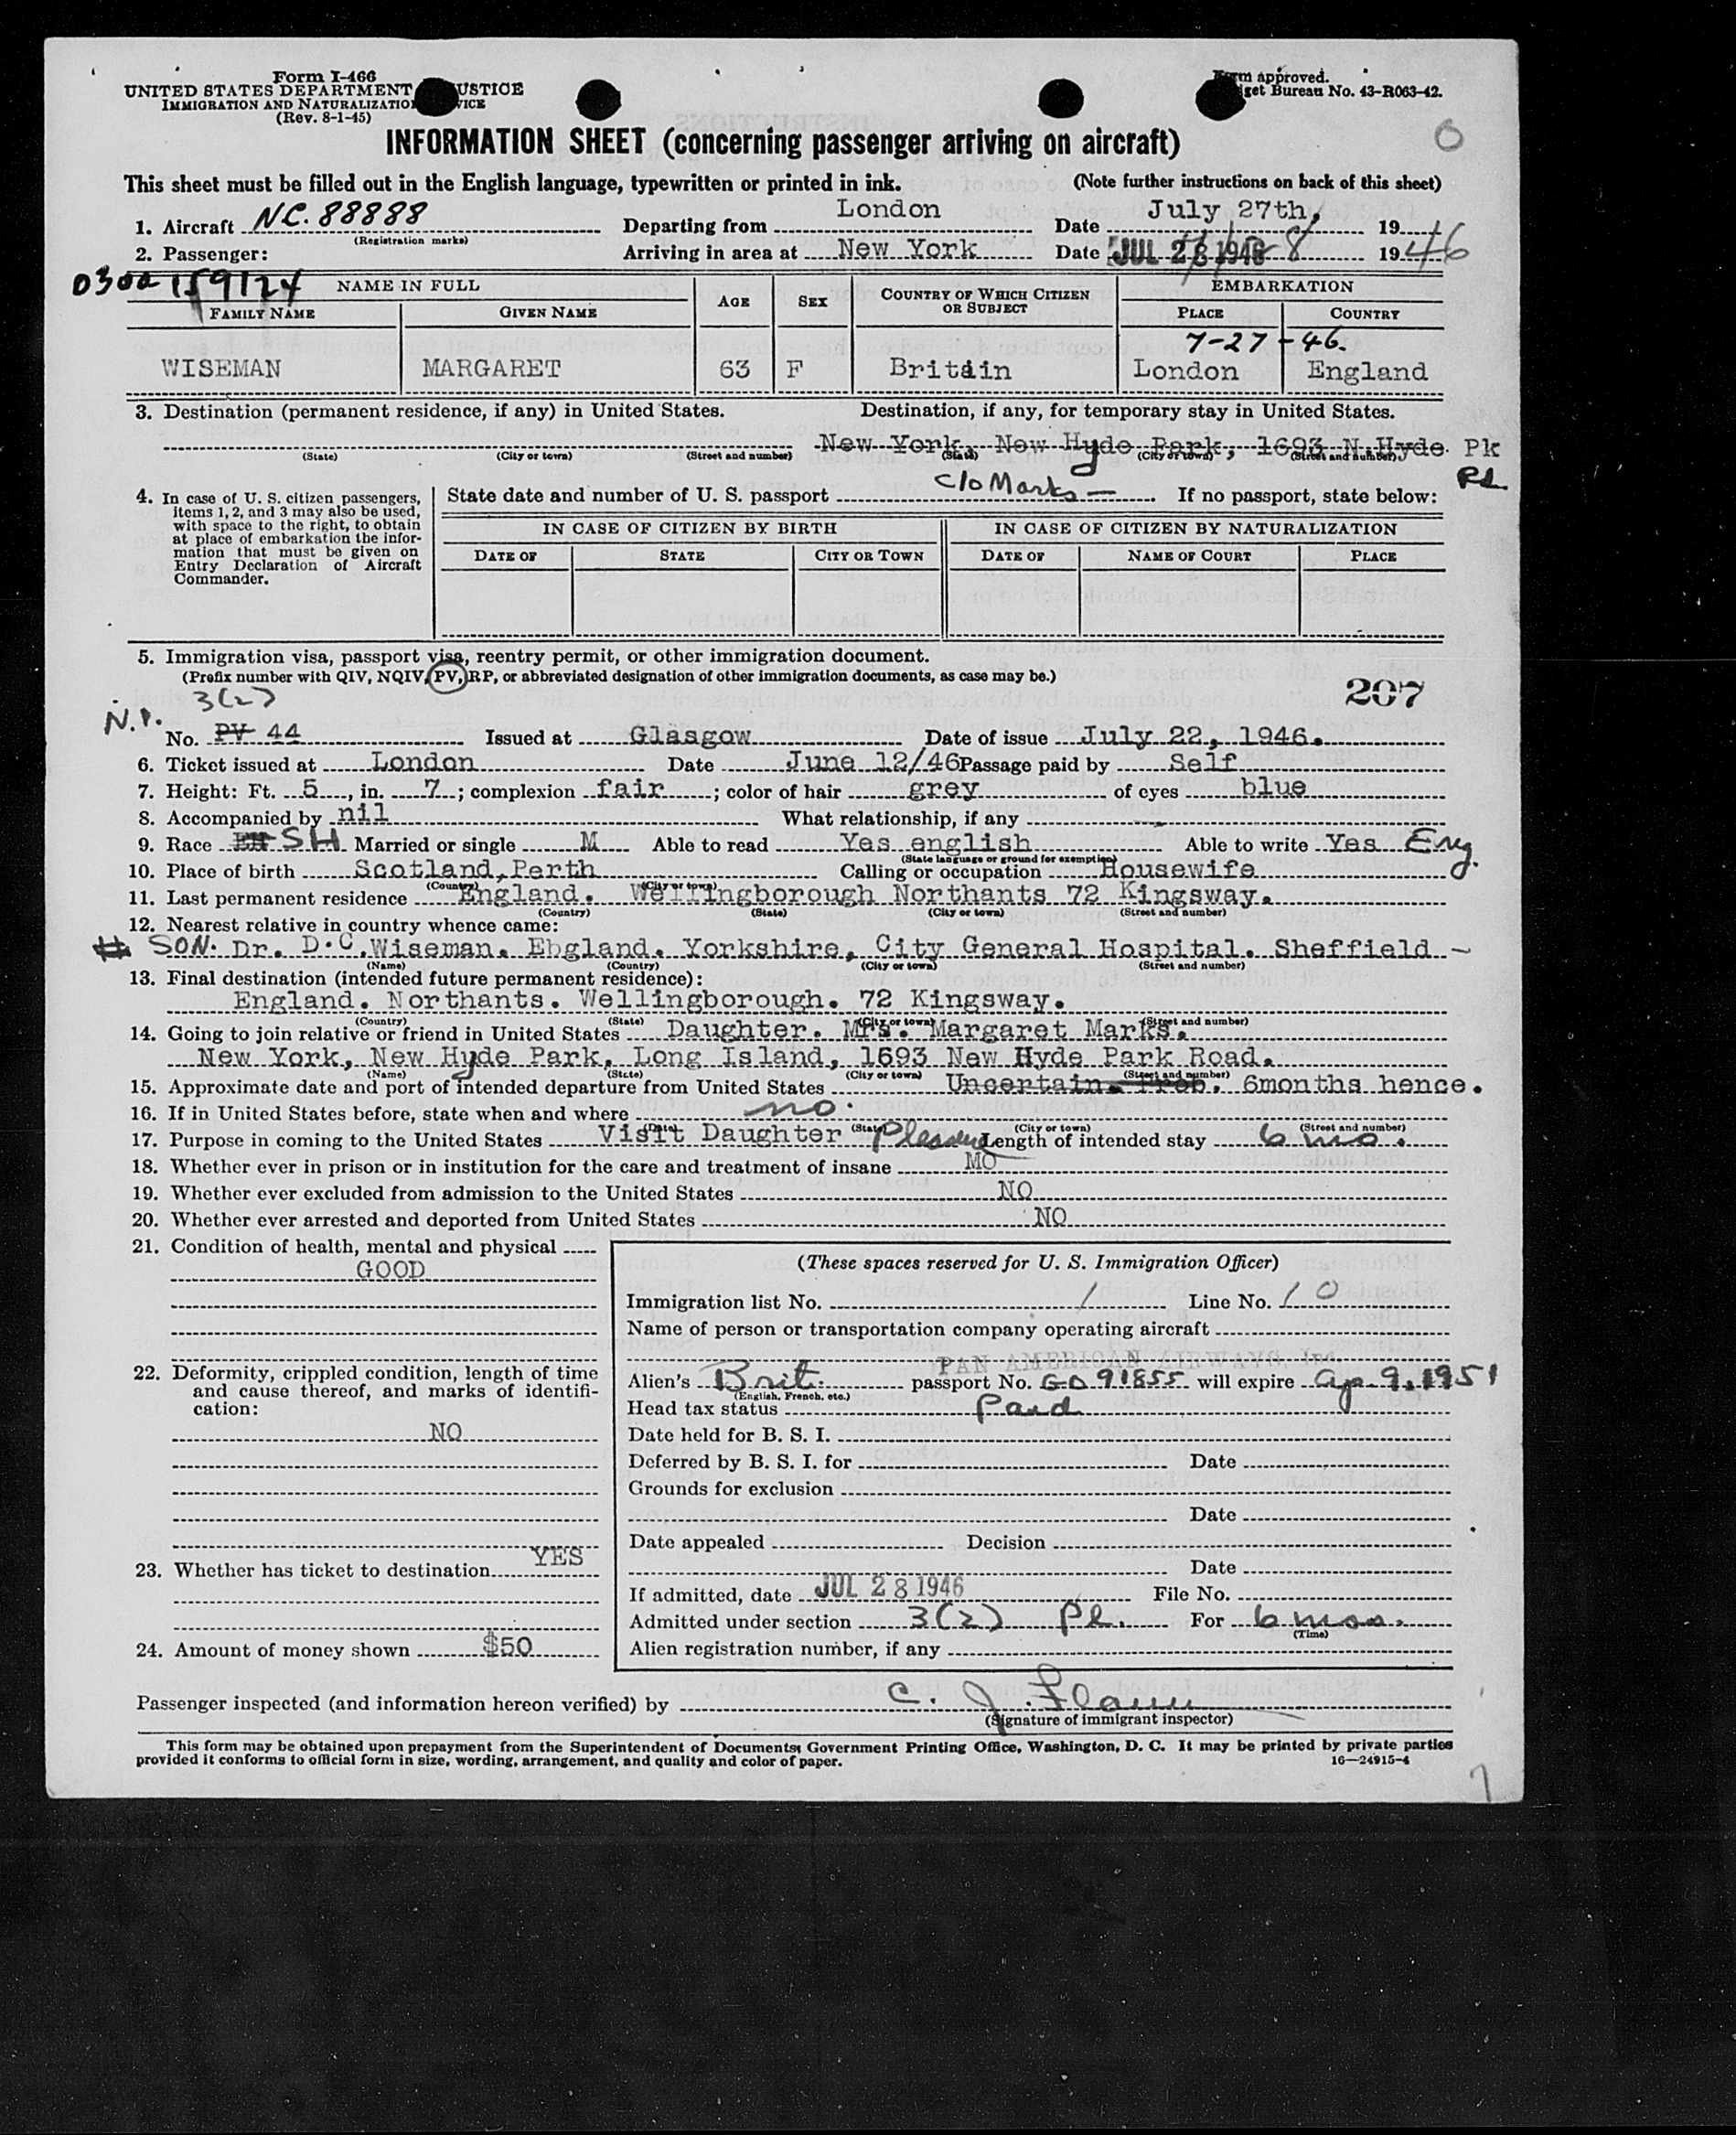 Form I-466
UNITED STATES DEPARTMENT USTICE
IMMIGRATION AND NATURALIZATIO VICE
(Rev. 8-1-45)
m approved.
get Bureau No. 43-R063-42.
INFORMATION SHEET (concerning passenger arriving on aircraft)
0
This sheet must be filled out in the English language, typewritten or printed in ink. (Note further instructions on back of this sheet)
1. Aircraft NC. 88888 Departing from London Date July 27th, 19
(Registration marks)
2. Passenger: Arriving in area at New York Date JUL 28 1946 1946
0300 159124
NAME IN FULL AGE SEX COUNTRY OF WHICH CITIZEN OR SUBJECT EMBARKATION
FAMILY NAME GIVEN NAME PLACE COUNTRY
7-27-46.
WISEMAN MARGARET 63 F Britain London England
3. Destination (permanent residence, if any) in United States. Destination, if any, for temporary stay in United States.
New York, New Hyde Park, 1693 N.Hyde Pk
(State) (City or town) (Street and number) (State) (City or town) (Street and number)
Rd.
c/o Marks —
4. In case of U. S. citizen passengers, items 1, 2, and 3 may also be used, with space to the right, to obtain at place of embarkation the information that must be given on Entry Declaration of Aircraft Commander.
State date and number of U. S. passport If no passport, state below:
IN CASE OF CITIZEN BY BIRTH IN CASE OF CITIZEN BY NATURALIZATION
DATE OF STATE CITY OR TOWN DATE OF NAME OF COURT PLACE
5. Immigration visa, passport visa, reentry permit, or other immigration document.
(Prefix number with QIV, NQIV, PV, RP, or abbreviated designation of other immigration documents, as case may be.)
207
3(2)
N.I.
No. PV 44 Issued at Glasgow Date of issue July 22, 1946.
6. Ticket issued at London Date June 12/46 Passage paid by Self
7. Height: Ft. 5, in. 7; complexion fair; color of hair grey of eyes blue
8. Accompanied by nil What relationship, if any -
9. Race SH Married or single M Able to read Yes english Able to write Yes Eng.
(State language or ground for exemption)
10. Place of birth Scotland, Perth Calling or occupation Housewife
(Country) (City or town)
11. Last permanent residence England. Wellingborough Northants 72 Kingsway.
(Country) (State) (City or town) (Street and number)
12. Nearest relative in country whence came:
SON. Dr. D.C.Wiseman. Ebgland. Yorkshire, City General Hospital. Sheffield -
(Name) (Country) (City or town) (Street and number)
13. Final destination (intended future permanent residence):
England. Northants. Wellingborough. 72 Kingsway.
(Country) (State) (City or town) (Street and number)
14. Going to join relative or friend in United States Daughter. Mrs. Margaret Marks.
New York, New Hyde Park, Long Island, 1693 New Hyde Park Road.
(Name) (State) (City or town) (Street and number)
15. Approximate date and port of intended departure from United States Uncertain. Prob. 6months hence.
16. If in United States before, state when and where no.
(Date) (State) (City or town) (Street and number)
17. Purpose in coming to the United States Visit Daughter Pleasure Length of intended stay 6 mo.
18. Whether ever in prison or in institution for the care and treatment of insane MO
19. Whether ever excluded from admission to the United States NO
20. Whether ever arrested and deported from United States NO
21. Condition of health, mental and physical
GOOD
22. Deformity, crippled condition, length of time and cause thereof, and marks of identification:
NO
23. Whether has ticket to destination YES
24. Amount of money shown $50
(These spaces reserved for U. S. Immigration Officer)
Immigration list No. 1 Line No. 10
Name of person or transportation company operating aircraft
PAN AMERICAN AIRWAYS, Inc.
Alien's Brit. passport No. GD 91855 will expire Ap. 9, 1951
(English, French, etc.)
Head tax status Paid
Date held for B. S. I.
Deferred by B. S. I. for Date
Grounds for exclusion
Date
Date appealed Decision
Date
If admitted, date JUL 28 1946 File No.
Admitted under section 3(2) Pl. For 6 mos.
(Time)
Alien registration number, if any
Passenger inspected (and information hereon verified) by C. J. Flann
(Signature of immigrant inspector)
This form may be obtained upon prepayment from the Superintendent of Documents, Government Printing Office, Washington, D. C. It may be printed by private parties
provided it conforms to official form in size, wording, arrangement, and quality and color of paper. 16—24915-4
7